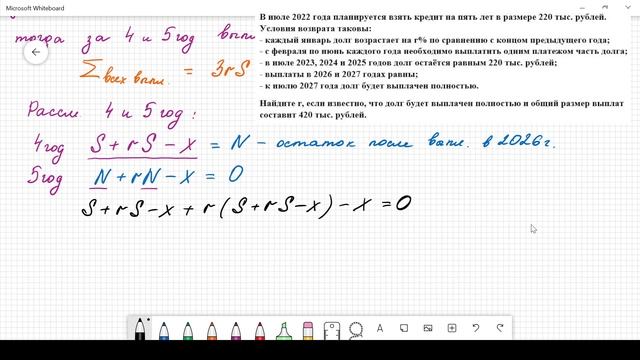 Microsoft Whiteboard
В июле 2022 года планируется взять кредит на пять лет в размере 220 тыс. рублей.
Условия возврата таковы:
- каждый январь долг возрастает на r% по сравнению с концом предыдущего года;
- с февраля по июнь каждого года необходимо выплатить одним платежом часть долга;
- в июле 2023, 2024 и 2025 годов долг остаётся равным 220 тыс. рублей;
- выплаты в 2026 и 2027 годах равны;
- к июлю 2027 года долг будет выплачен полностью.
Найдите r, если известно, что долг будет выплачен полностью и общий размер выплат
составит 420 тыс. рублей.
тогда за 4 и 5 год выпл
∑ всех выпл. = 3rS
Рассм. 4 и 5 год:
4 год S + rS - x = N - остаток после выпл. в 2026 г.
5 год N + rN - x = 0
S + rS - x + r(S + rS - x) - x = 0